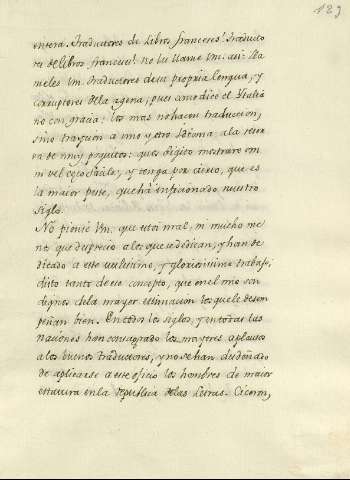 123
entera. Traductores de libros franceses! Traducto
res de libros franceses! no los llame Vm. asi: lla
meles Vm. traductores de su propria lengua, y
corruptores de la agena, pues como dice el Italia
no con gracia: los mas no hacen traduccion,
sino traycion a uno y otro Idioma, a la reser
va de muy poquitos: ques digito mostrare om
ni vel cæco facile; y tenga por cierto, que es
la maior peste, que ha inficionado nuestro
siglo.
No piense Vm. que estoi mal, ni mucho me
nos que desprecio a los que se dedican, y han de
dicado a este utilisimo, y gloriosisimo trabajo,
disto tanto de ese concepto, que en el mio son
dignos de la mayor estimacion los que le desem
peñan bien. En todos los siglos, y en todas las
naciones han consagrado los mayores aplausos
a los buenos traductores, y no se han desdeñado
de aplicarse a este oficio los hombres de maior
estatura en la Republica de las Letras. Ciceron,